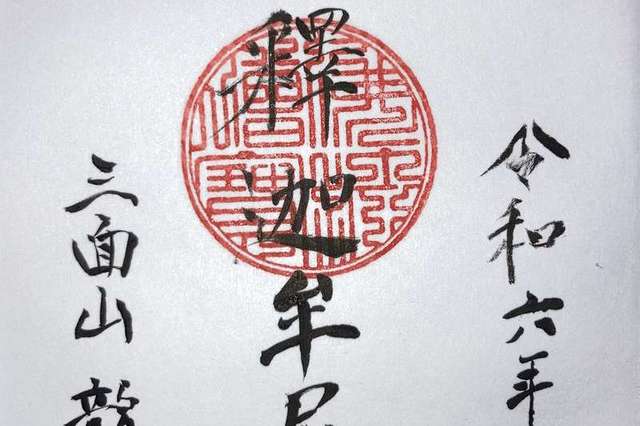 令和六年
釋迦牟尼
三面山 龍